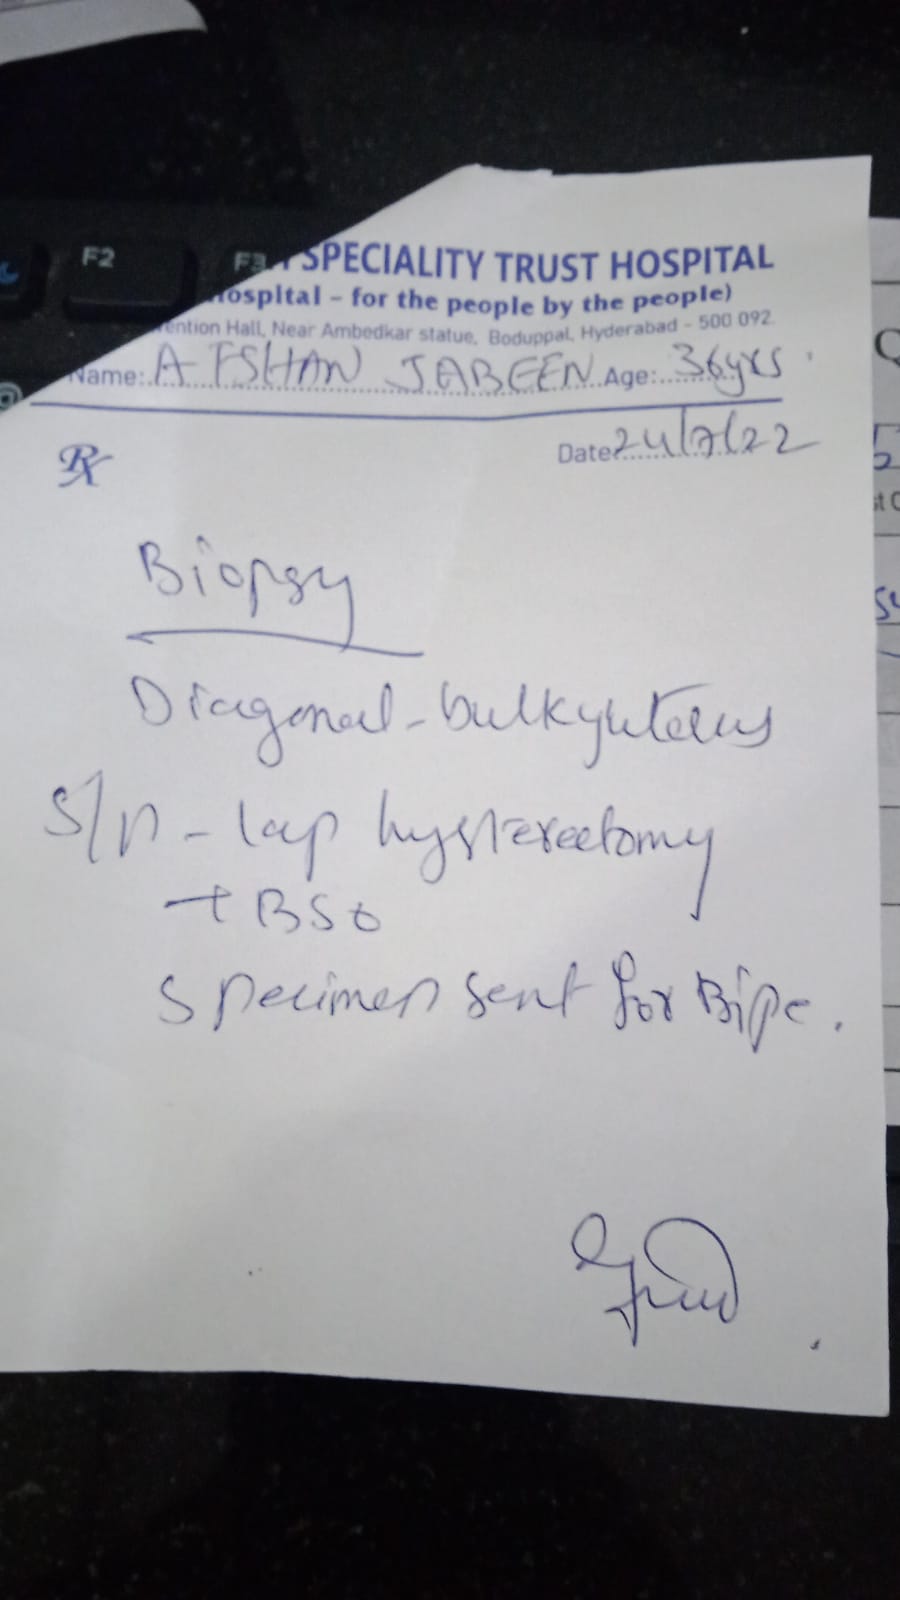 F2
F3
SPECIALITY TRUST HOSPITAL
Hospital – for the people by the people)
ention Hall, Near Ambedkar statue, Boduppal, Hyderabad - 500 092.
Name: AFSHAN JABEEN Age: 36yrs
Rx
Date: 24/7/22
Biopsy
bulky uterus
S/p - lap hysterectomy
+ BSO
Specimen sent for